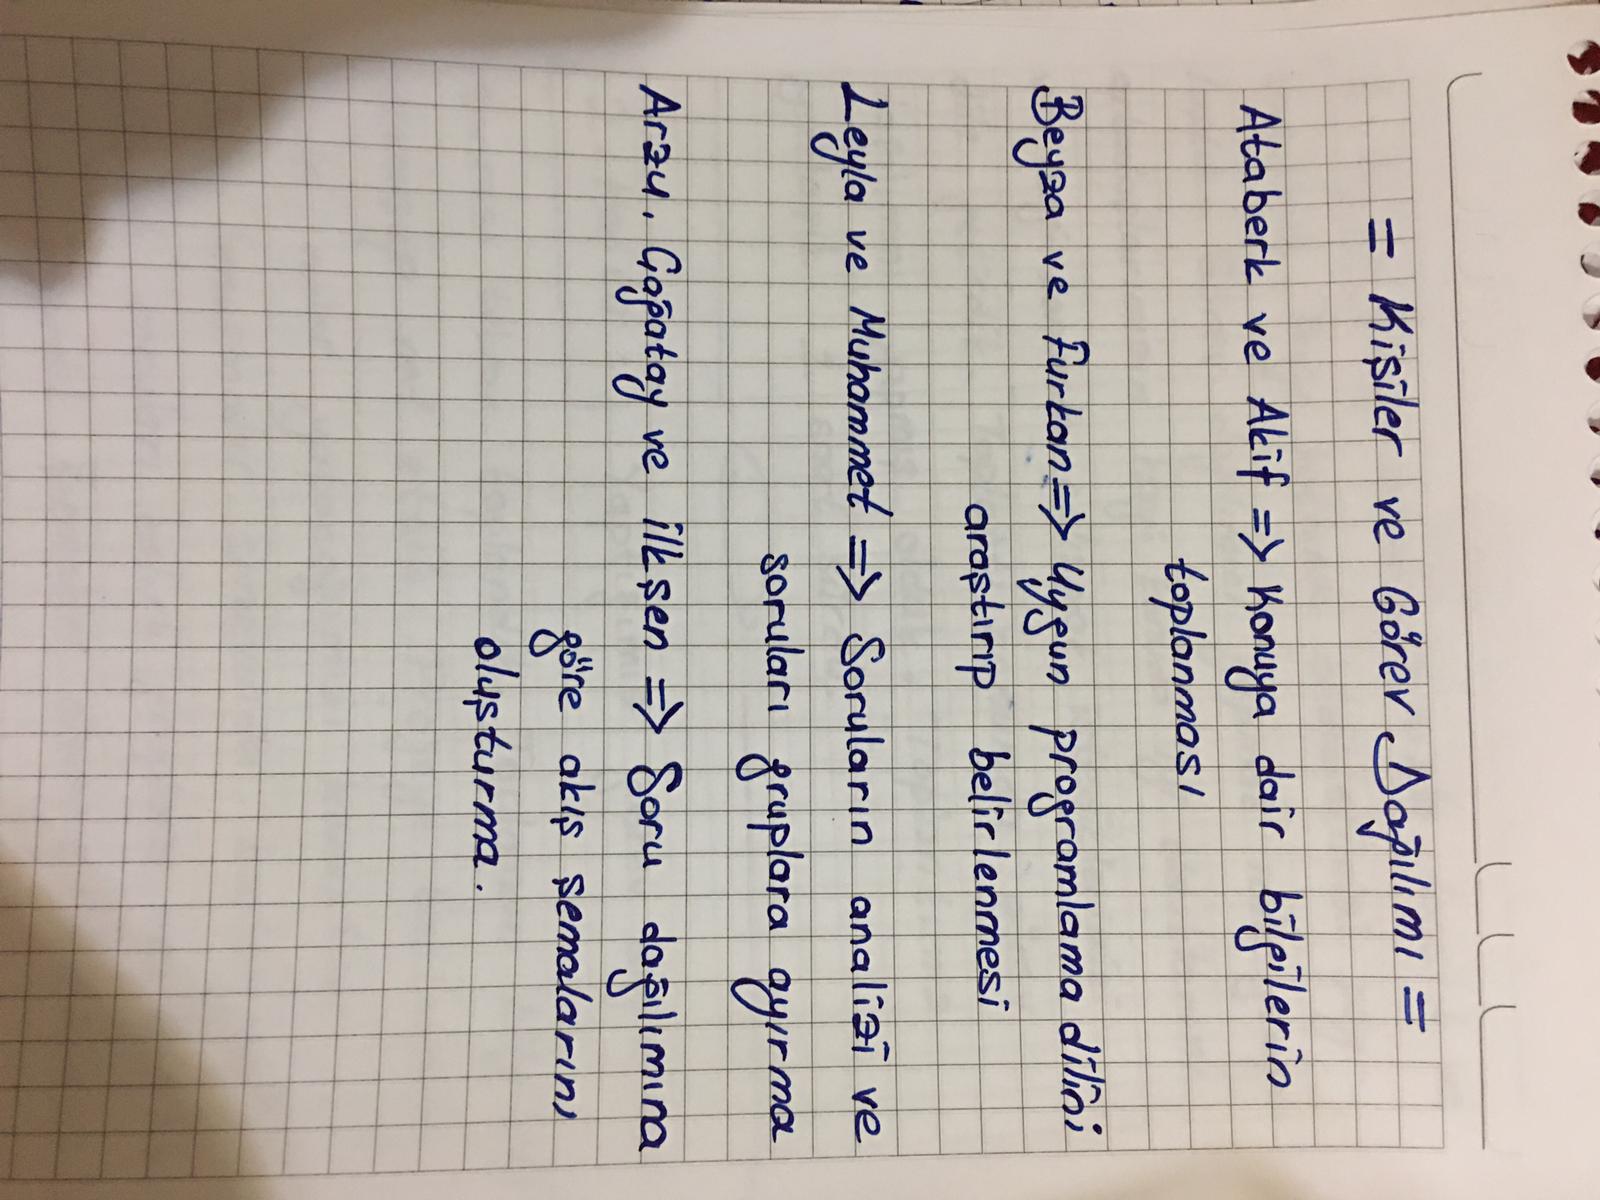 = Kişiler ve Görev Dağılımı =
Ataberk ve Akif => Konuya dair bilgilerin
toplanması
Beyza ve Furkan => Uygun programlama dilini
araştırıp belirlenmesi
Leyla ve Muhammet => Soruların analizi ve
soruları gruplara ayırma
Arzu, Çağatay ve ilkşen => Soru dağılımına
göre akış şemalarını
oluşturma.